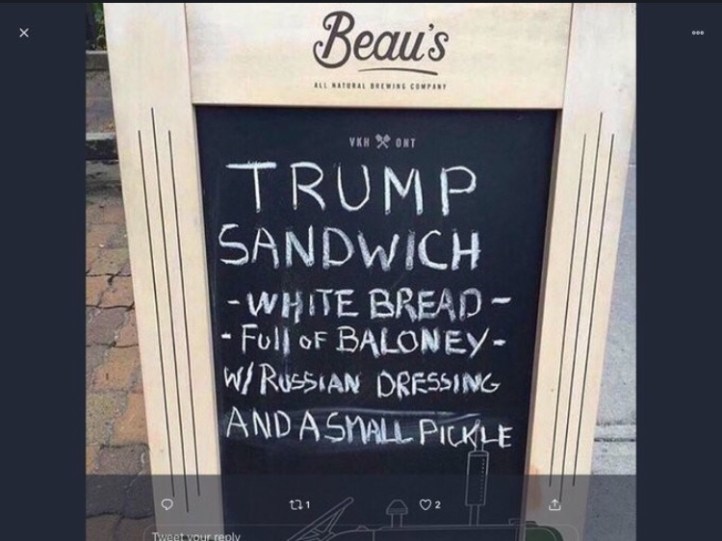 Beau's
ALL NATURAL BREWING COMPANY
VKH ONT
TRUMP
SANDWICH
-WHITE BREAD-
-Full OF BALONEY-
W/ RUSSIAN DRESSING
AND A SMALL PICKLE
1
2
Tweet your reply